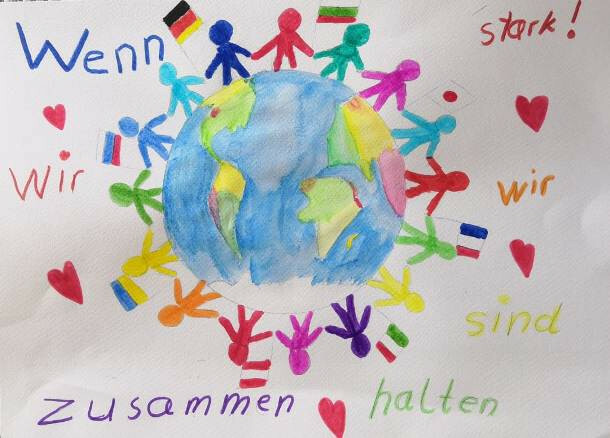 Wenn
Wir
zusammen
halten
sind
wir
stark!